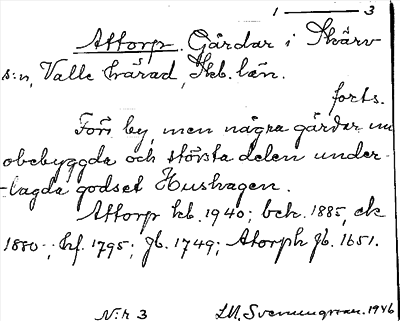 1 ——— 3
Attorp. Gårdar i Skärv
s:n, Valle härad, Skb. län.
forts.
Förr by, men några gårdar nu
obebyggda och största delen under-
lagda godset Hushagen.
Attorp kb. 1940; bek. 1885, ek
1880; hf. 1795; jb. 1749; Atorph jb. 1651.
N:r 3 LM. Svenungsson. 1946